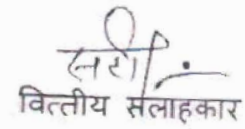 सही/-
वित्तीय सलाहकार